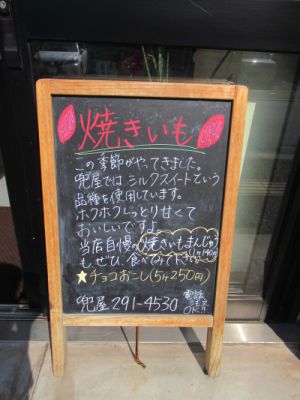 焼きいも
この季節がやってきました。
兜屋ではシルクスイートという
品種を使用しています。
ホクホクしっとり甘くて
おいしいですよ。
当店自慢の焼きいもまんじゅう
もぜひ食べてみて下さい
★チョコおこし(5ヶ250円)
兜屋 291-4530 電話
注文
OK!!